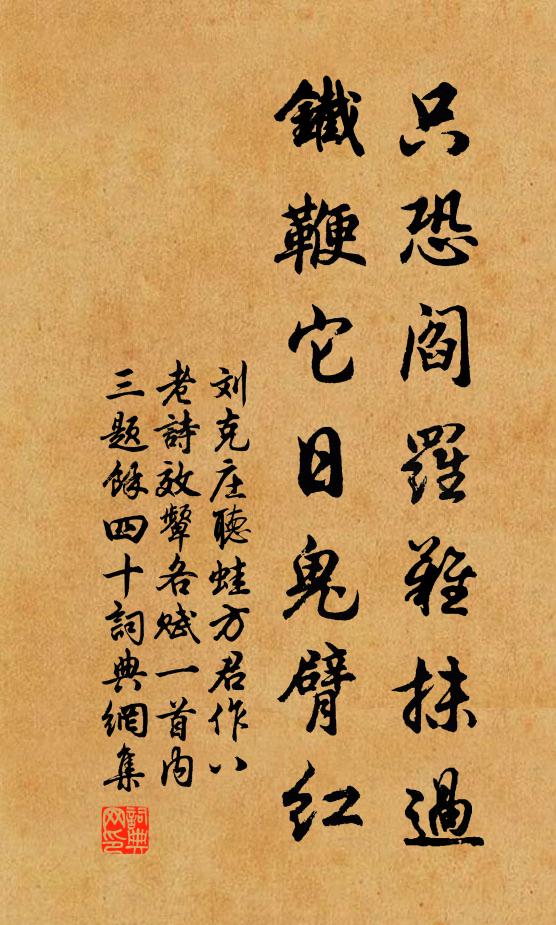 只恐阎羅難抹過
鐵鞭它日鬼臂红
刘克庄聽蛙方君作八
老詩效颦各赋一首内
三题餘四十詞典網集
詞典网印